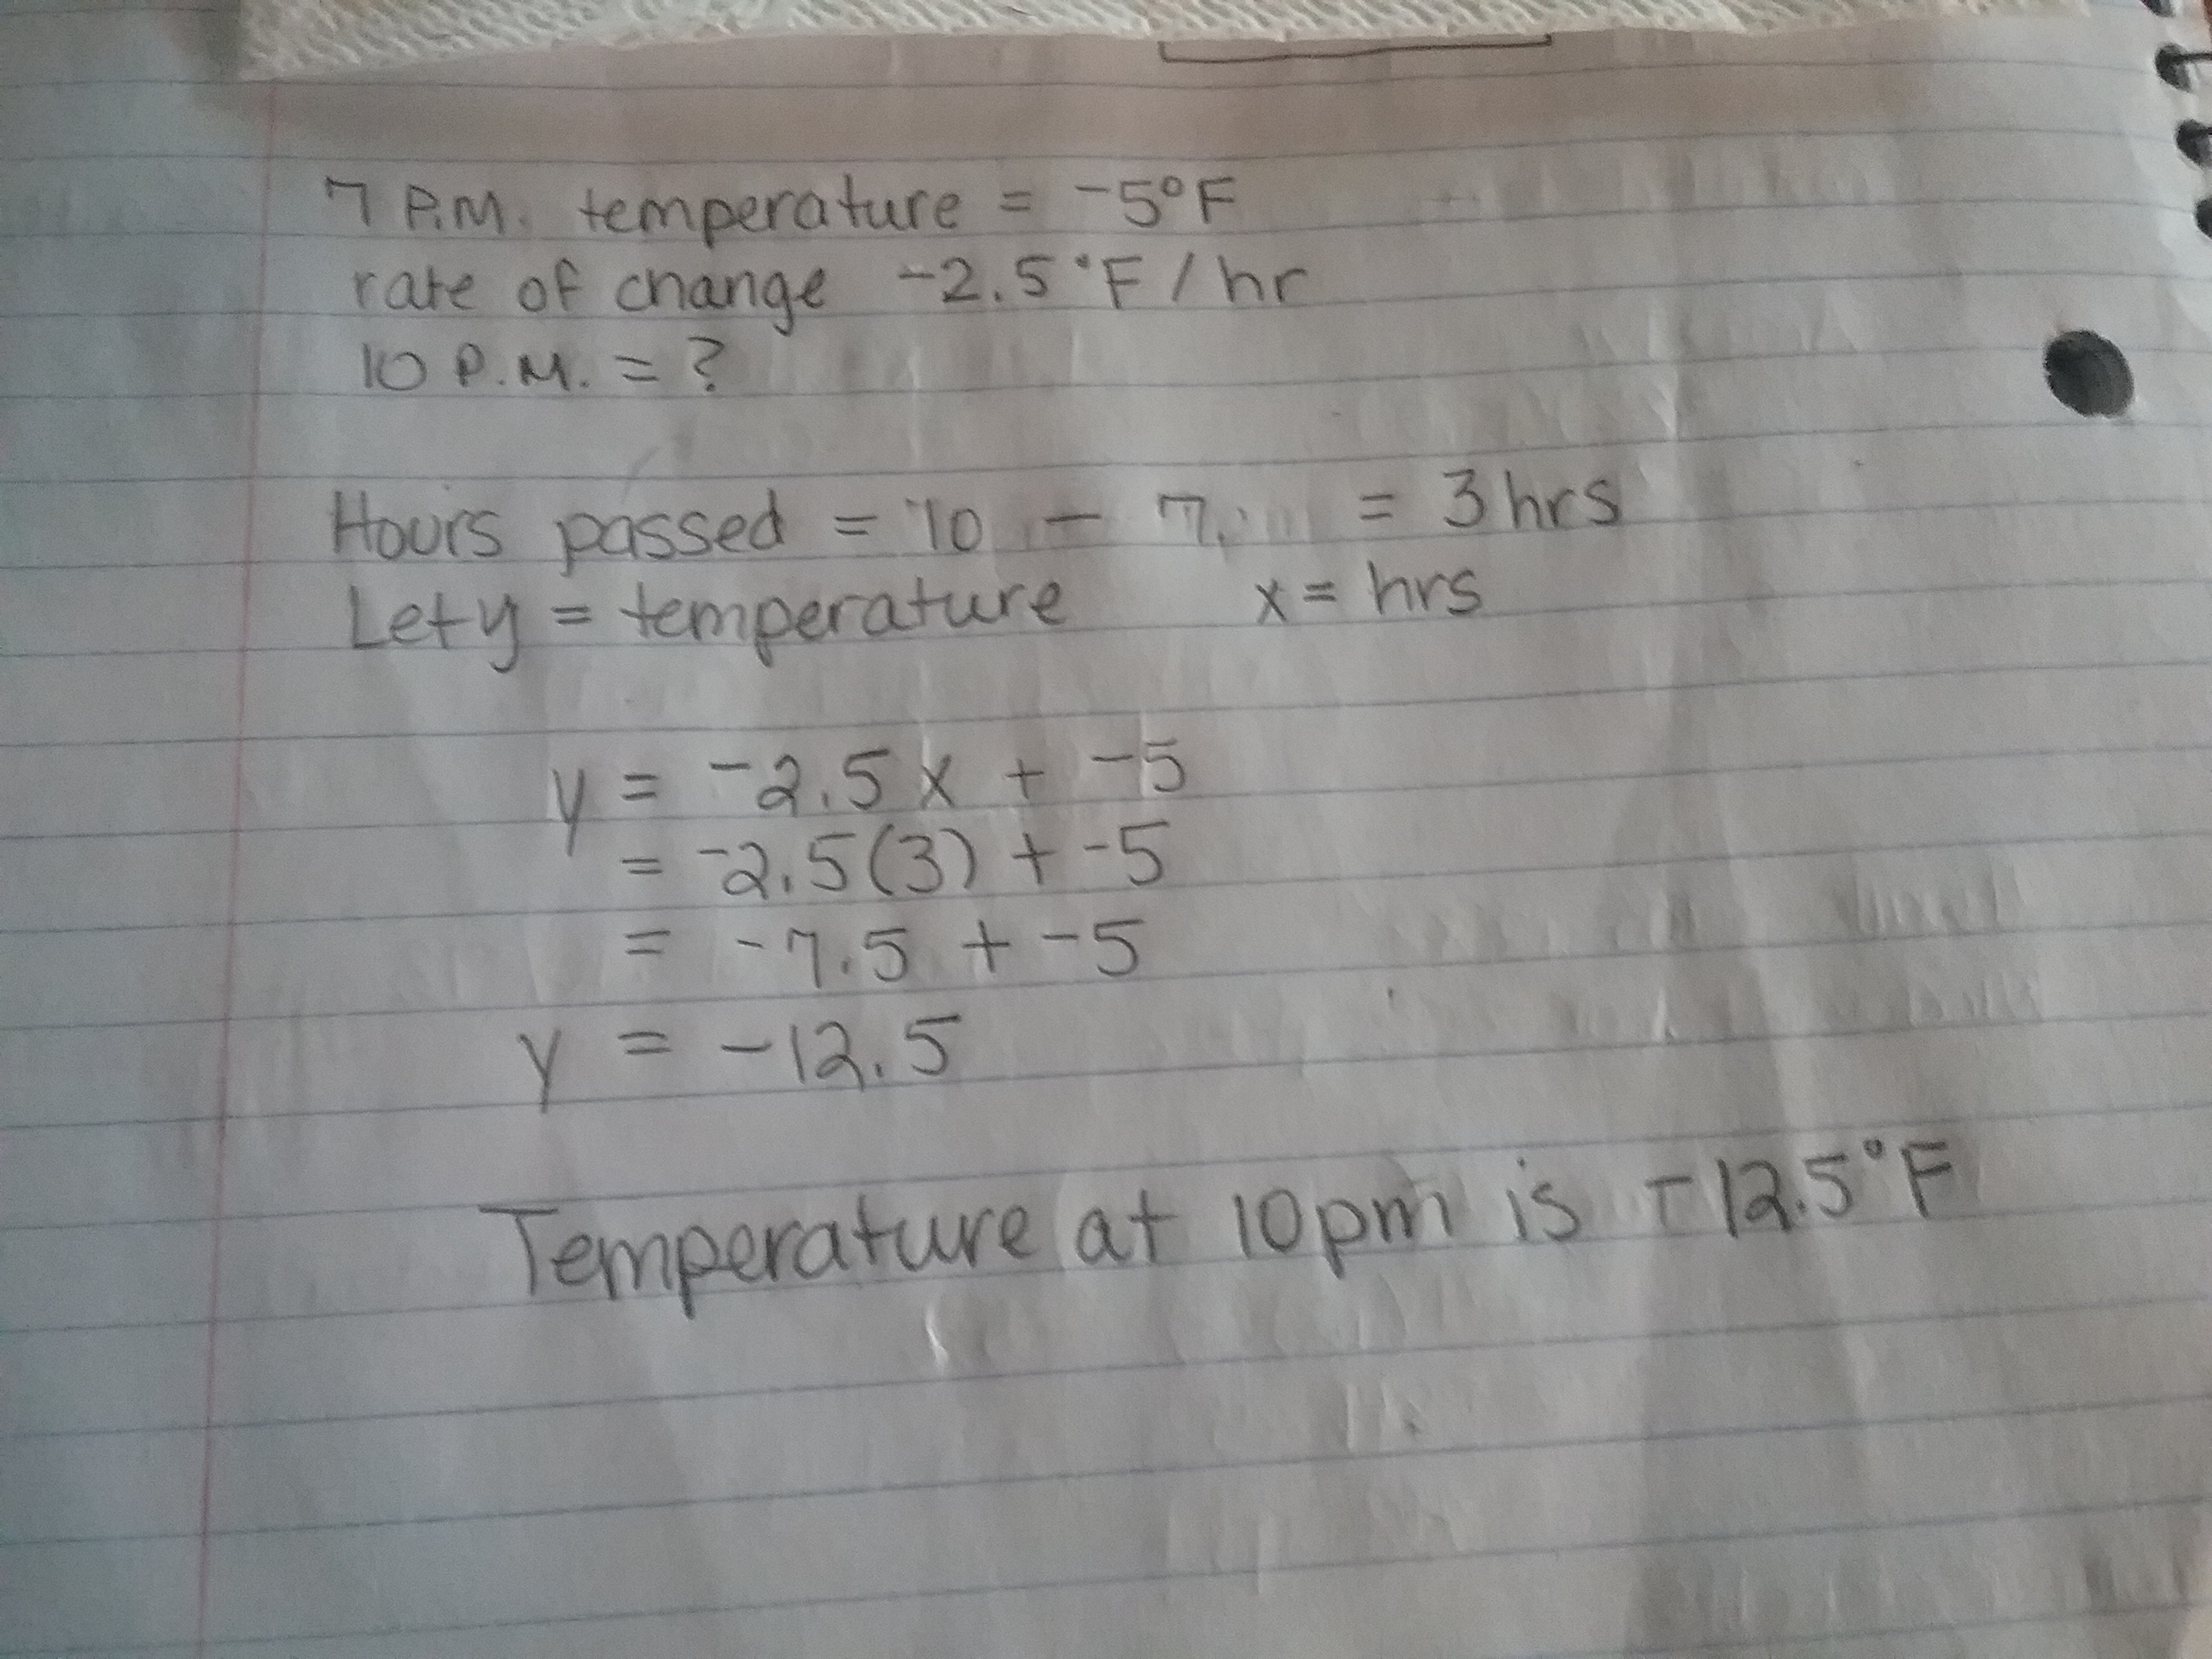 7 P.M. temperature = -5°F
rate of change -2.5°F / hr
10 P.M. = ?
Hours passed = 10 - 7 = 3 hrs
Let y = temperature x = hrs
y = -2.5x + -5
= -2.5(3) + -5
= -7.5 + -5
y = -12.5
Temperature at 10pm is -12.5°F